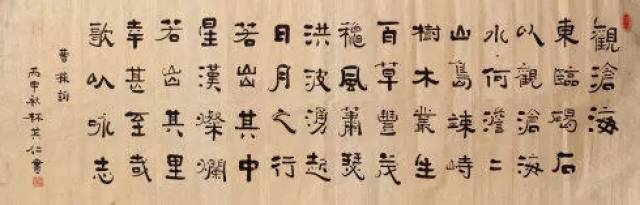 觀滄海
東臨碣石
以觀滄海
水何澹二
山島竦峙
樹木叢生
百草豐茂
穐風蕭瑟
洪波湧起
日月之行
若出其中
星漢燦爛
若出其里
幸甚至哉
歌以咏志
曹操詞
丙申秋林其仁書